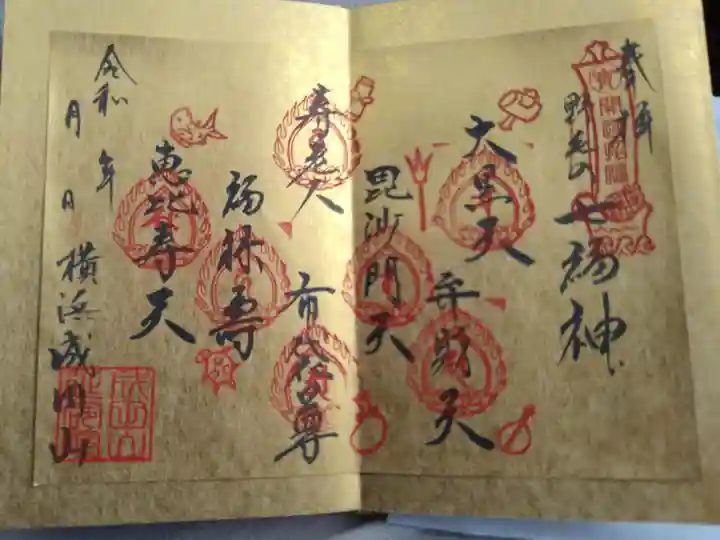 奉拝
野毛山
七福神
大黒天
弁財天
毘沙門天
寿老人
布袋尊
福禄寿
恵比寿天
令和 年
月 日
横浜成田山